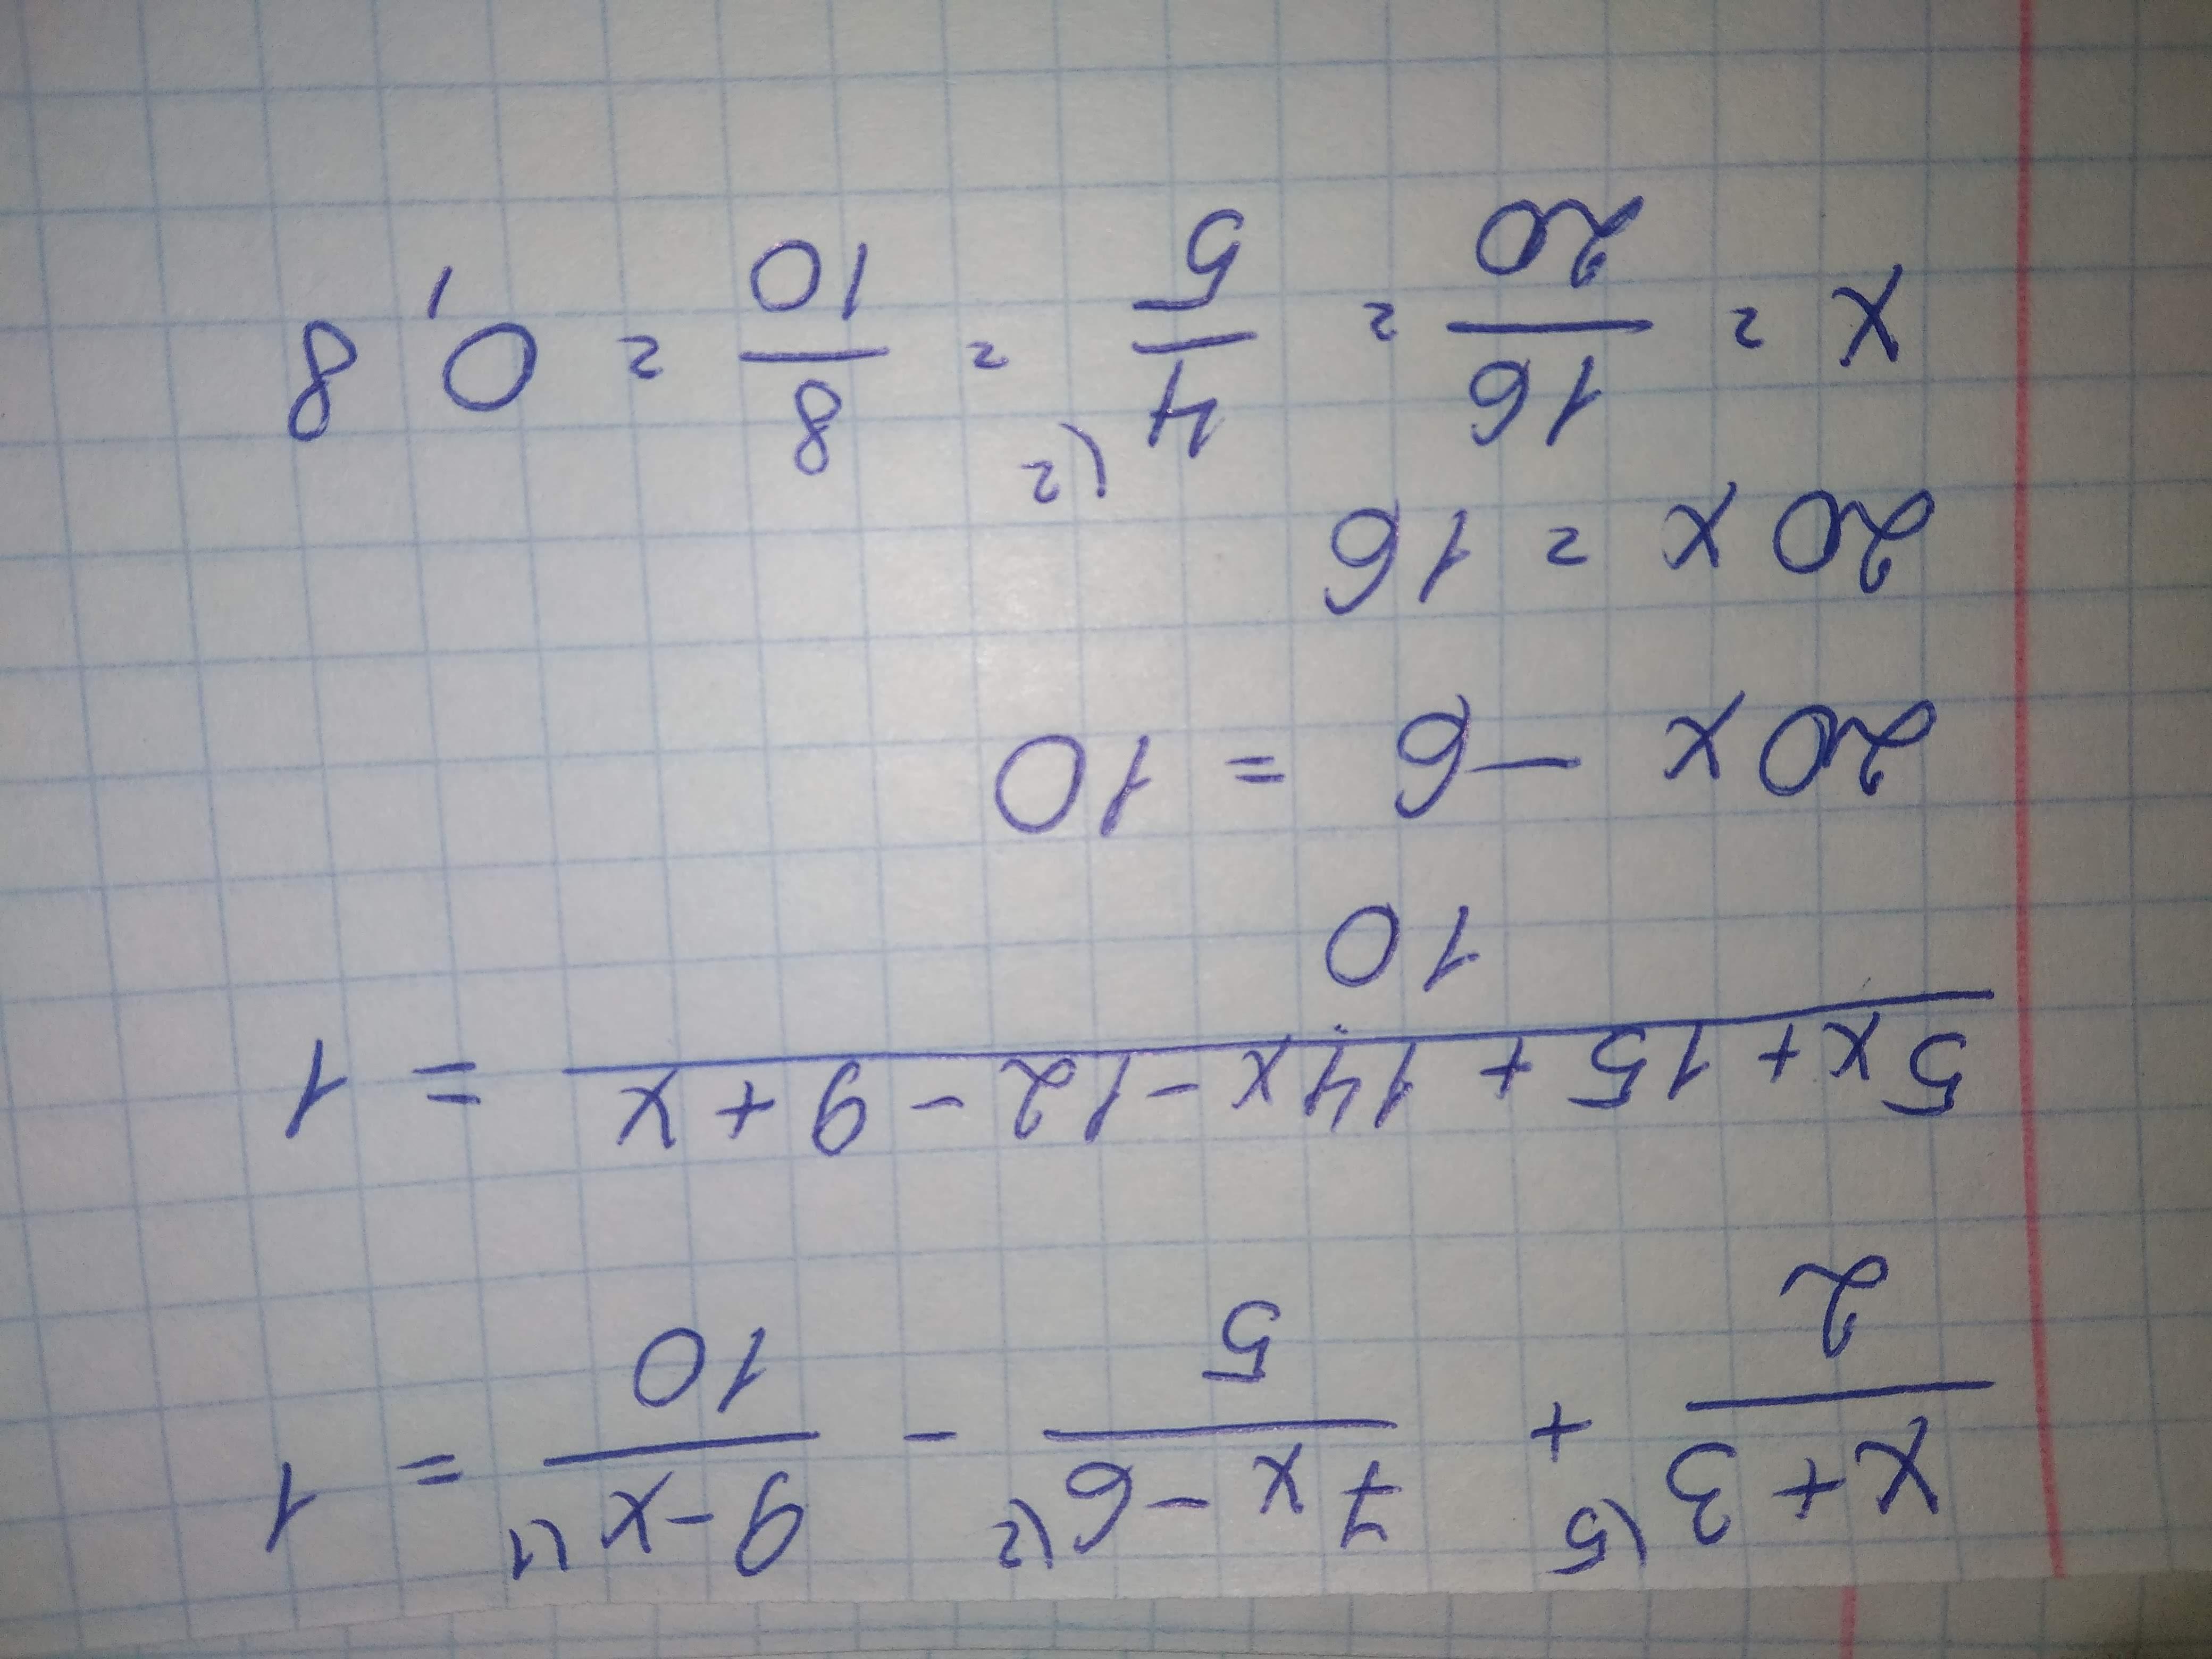 x+3\5 / 2 + 7x-6\2 / 5 - 9-x\1 / 10 = 1
5x+15+14x-12-9+x / 10 = 1
20x - 6 = 10
20x = 16
x = 16/20 = 4\2 / 5 = 8/10 = 0,8